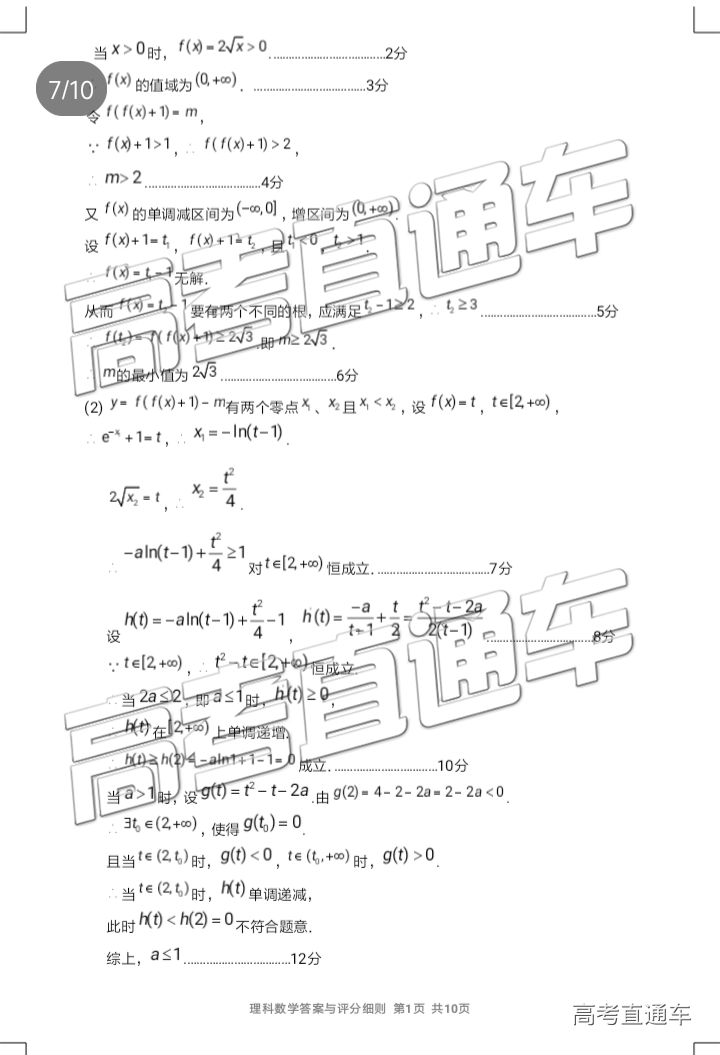 当 x > 0 时， f(x) = 2√x > 0 ...................................2分
7/10
f(x) 的值域为 (0, +∞) ． ...................................3分
令 f( f(x) + 1) = m ，
∵ f(x) + 1 > 1 ，∴ f( f(x) + 1) > 2 ，
∴ m > 2 ...................................4分
又 f(x) 的单调减区间为 (−∞, 0] ，增区间为 (0, +∞) .
设 f(x) + 1 = t₁ ， f(x) + 1 = t₂ ，且 t₁ < 0 ，t₂ > 1 .
∴ f(x) = t₁ − 1 无解.
从而 f(x) = t₂ − 1 要有两个不同的根，应满足 t₂ − 1 ≥ 2 ，∴ t₂ ≥ 3 ...................................5分
∴ f(t₂) = f( f(x) + 1) ≥ 2√3 .即 m ≥ 2√3 .
∴ m的最小值为 2√3 ...................................6分
(2) y = f( f(x) + 1) − m有两个零点 x₁ 、x₂ 且 x₁ < x₂ ，设 f(x) = t ，t ∈ [2, +∞) ，
∴ e^(−x₁) + 1 = t ，∴ x₁ = − ln(t − 1) .
2√x₂ = t ，∴ x₂ = t²/4 .
∴ −aln(t − 1) + t²/4 ≥ 1 对 t ∈ [2, +∞) 恒成立. ...................................7分
设 h(t) = −aln(t − 1) + t²/4 − 1 ， h′(t) = −a/(t − 1) + t/2 = (t² − t − 2a)/(2(t − 1)) ...................................8分
∵ t ∈ [2, +∞) ，∴ t² − t ∈ [2, +∞) 恒成立.
∴ 当 2a ≤ 2 ，即 a ≤ 1 时，h′(t) ≥ 0 ，
∴ h(t) 在 [2, +∞) 上单调递增.
∴ h(t) ≥ h(2) = −aln1 + 1 − 1 = 0 成立. ...................................10分
当 a > 1 时，设 g(t) = t² − t − 2a .由 g(2) = 4 − 2 − 2a = 2 − 2a < 0 .
∴ ∃t₀ ∈ (2, +∞) ，使得 g(t₀) = 0 .
且当 t ∈ (2, t₀) 时，g(t) < 0 ，t ∈ (t₀, +∞) 时，g(t) > 0 .
∴ 当 t ∈ (2, t₀) 时，h(t) 单调递减，
此时 h(t) < h(2) = 0 不符合题意.
综上，a ≤ 1 ...................................12分
高考直通车
高考直通车
理科数学答案与评分细则 第1页 共10页
高考直通车